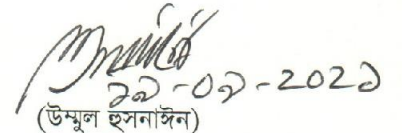 ১৯-০৯-২০২১
(উম্মুল হুসনাঈন)